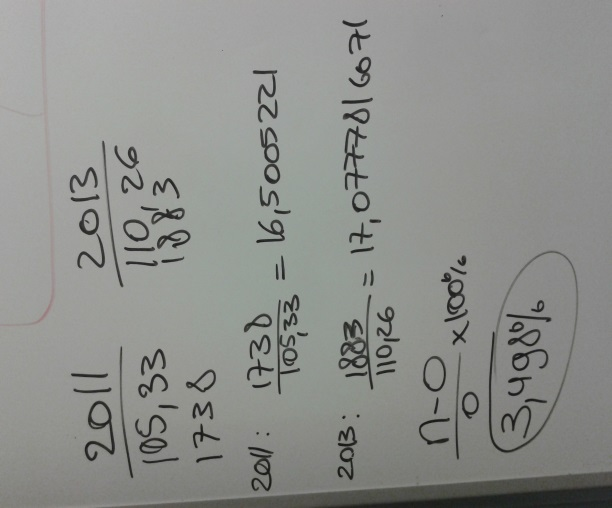 2011 2013
105,33 110,26
1738 1883
2011: 1738 / 105,33 = 16,5005221
2013: 1883 / 110,26 = 17,0777816071
n-0 / 0 x100%
3,498%